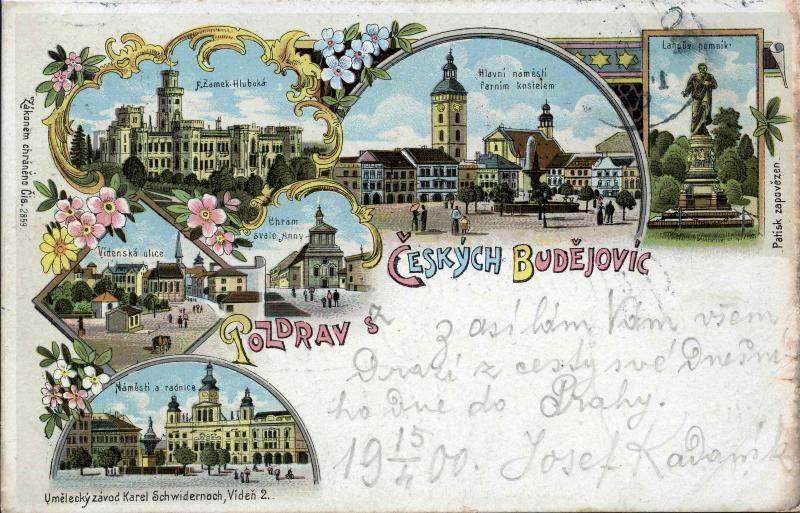 P. Zámek-Hluboká
Hlavní náměstí
farním kostelem
Lanův pomník
Zákonem chráněno čís. 2859.
Patisk zapovězen
Chrám
svaté „Anny“
Vídenská ulice
Českých Budějovic
Pozdrav s
Náměstí a radnice
z
zasílám Vám všem
Drazí z cesty své Dnešní
ho Dne do Prahy.
19 15/4 00. Josef Kadaník
Umělecký závod Karel Schwidernoch, Vídeň 2.